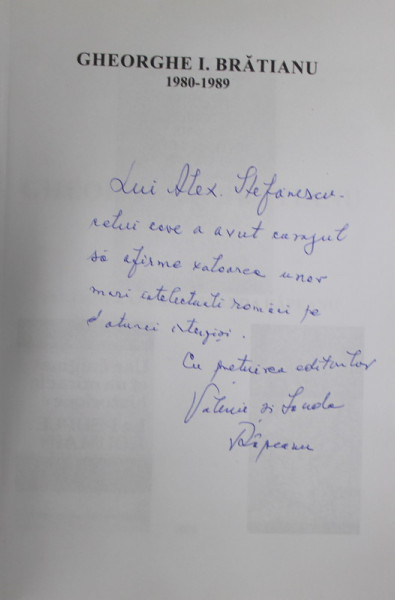 GHEORGHE I. BRĂTIANU
1980-1989
Lui Alex. Ștefănescu -
celui care a avut curajul
să afirme valoarea unor
mari intelectuali români pe
atunci interziși.
Cu prețuirea editorilor
Valeriu și Sanda
Râpeanu